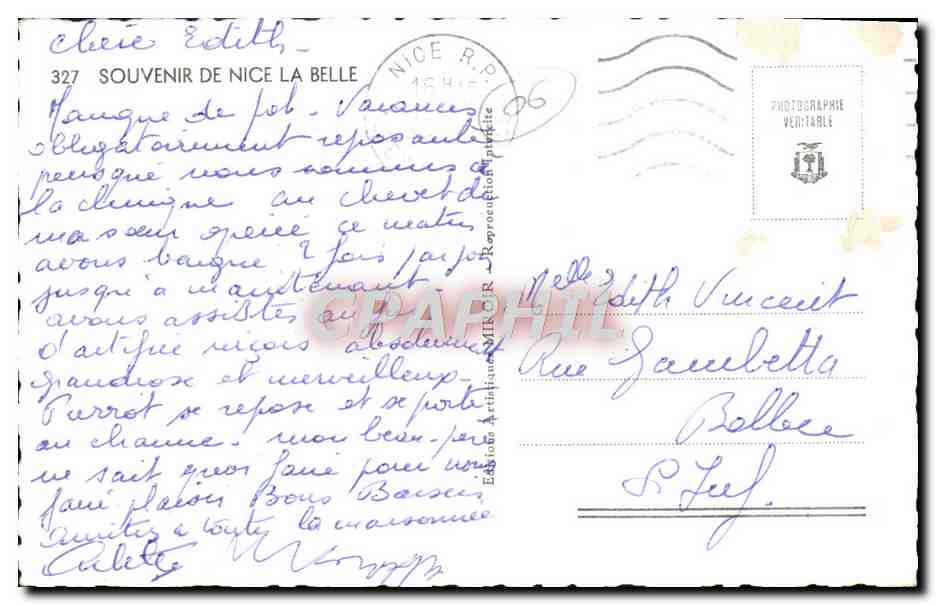 chère Edith -
327 SOUVENIR DE NICE LA BELLE
Manque de pot - Vacances
obligatoirement reposante
puisque nous sommes à
la clinique au chevet de
ma sœur opérée ce matin
avons baigné 2 fois par jour
jusqu'à maintenant -
avons assistés au feu
d'artifice niçois absolument
grandiose et merveilleux -
Pierrot se repose et se porte
au charme - mon beau-père
ne sait quoi faire pour nous
faire plaisir Bons Baisers
Amitiés à toute la maisonnée
Arlette
NICE R.P.
06
Editions Artistiques MIROIR - Reproduction Interdite
PHOTOGRAPHIE
VERITABLE
Melle Edith Vincent
Rue Gambetta
Bolbec
S. Inf.
CPAPHIL